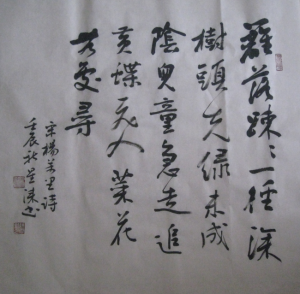 籬落疎〻一徑深
樹頭綠未成
陰兒童急走追
黃蝶飛入菜花
無處尋
宋楊萬里詩
壬辰秋